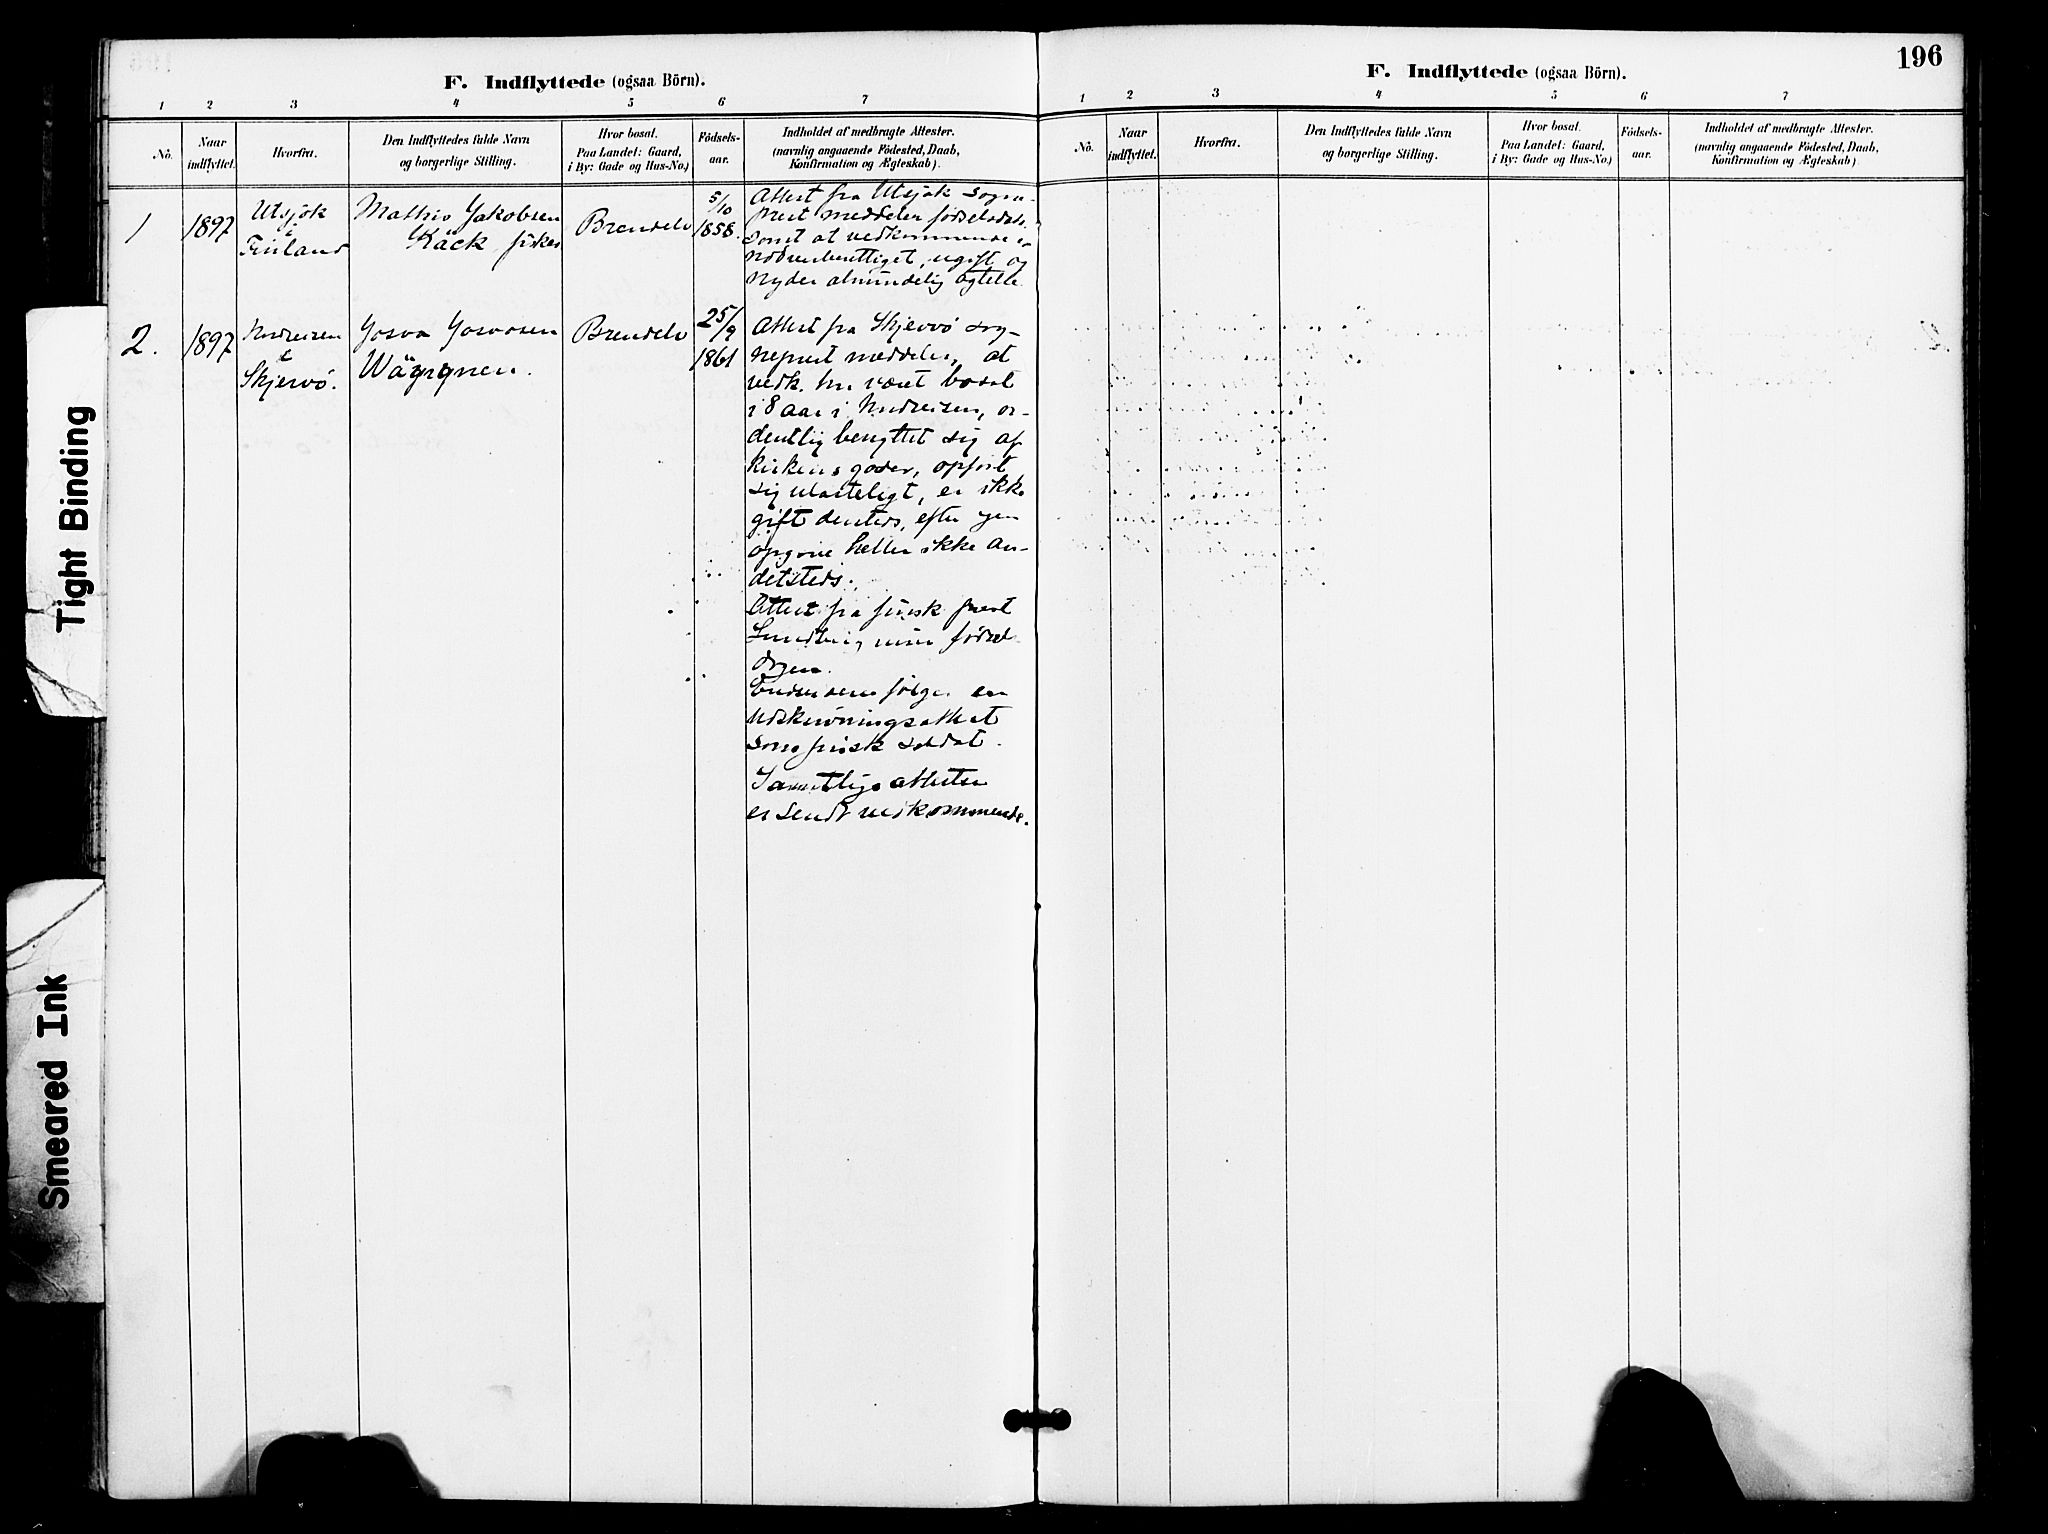 F. Indflyttede (ogsaa Börn).
1 2 3 4 5 6 7
No. Naar indflyttet. Hvorfra. Den Indflyttedes fulde Navn og borgerlige Stilling. Hvor bosat. Paa Landet: Gaard, i By: Gade og Hus-No.) Födsels-aar. Indholdet af medbragte Attester. (navnlig angaaende Födested, Daab, Konfirmation og Ægteskab).
1 1897 Utsjok i Finland Mathis Jakobsen Käck fisker Brendelv 5/10 1858.
Attest fra Utsjok sogne-
prest meddeler fødselsdato
samt at vedkommende er
nadverberettiget, ugift og
nyder almindelig agtelse.
2. 1897 Nordreisen i Skjervö. Josva Josvasen Brendelv 25/9 1861
Attest fra Skjervö sog-
neprest meddeler, at
vedk. har været bosat
i 8 aar i Nordreisen, or-
dentlig benyttet sig af
kirkens goder, opført
sig ulasteligt, er ikke
gift dersteds, efter egen
opgave heller ikke an-
detsteds.
Attest fra finsk prest
fødsel
dagen.
Endvidere følger en
udskrivningsattest
som finsk soldat.
Samtlige attester
er sendt vedkommende.
F. Indflyttede (ogsaa Börn).
196
1 2 3 4 5 6 7
No. Naar indflyttet. Hvorfra. Den Indflyttedes fulde Navn og borgerlige Stilling. Hvor bosat. Paa Landet: Gaard, i By: Gade og Hus-No.) Födsels-aar. Indholdet af medbragte Attester. (navnlig angaaende Födested, Daab, Konfirmation og Ægteskab)
Tight Binding
Smeared Ink